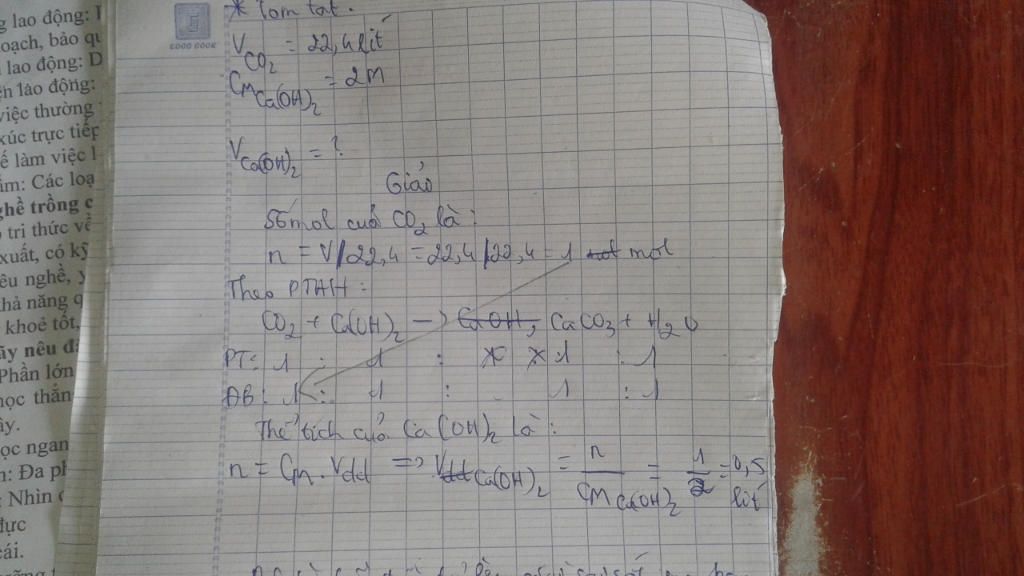 g lao động: I
oạch, bảo qu
lao động: D
ện lào động:
việc thường
xúc trực tiếp
ế làm việc l
ìm: Các loạ
ghề trồng c
tri thức về
xuất, có kỹ
êu nghề, y
hả năng q
khoẻ tốt,
ãy nêu đ
Phần lớn
học thẳn
ây.
ọc ngan
n: Đa ph
Nhìn
đực
cái.
GOOD BOOK
* Tóm tắt.
V CO2 = 22,4 lít
CM Ca(OH)2 = 2M
V Ca(OH)2 = ?
Giải
Số mol của CO2 là:
n = V/22,4 = 22,4/22,4 = 1 mol
Theo PTHH:
CO2 + Ca(OH)2 → CaCO3 + H2O
PT: 1 : 1 : 1 : 1
ĐB: 1 : 1 : 1 : 1
Thể tích của Ca(OH)2 là:
n = CM. Vdd => Vdd Ca(OH)2 = n / CM Ca(OH)2 = 1/2 = 0,5 lít